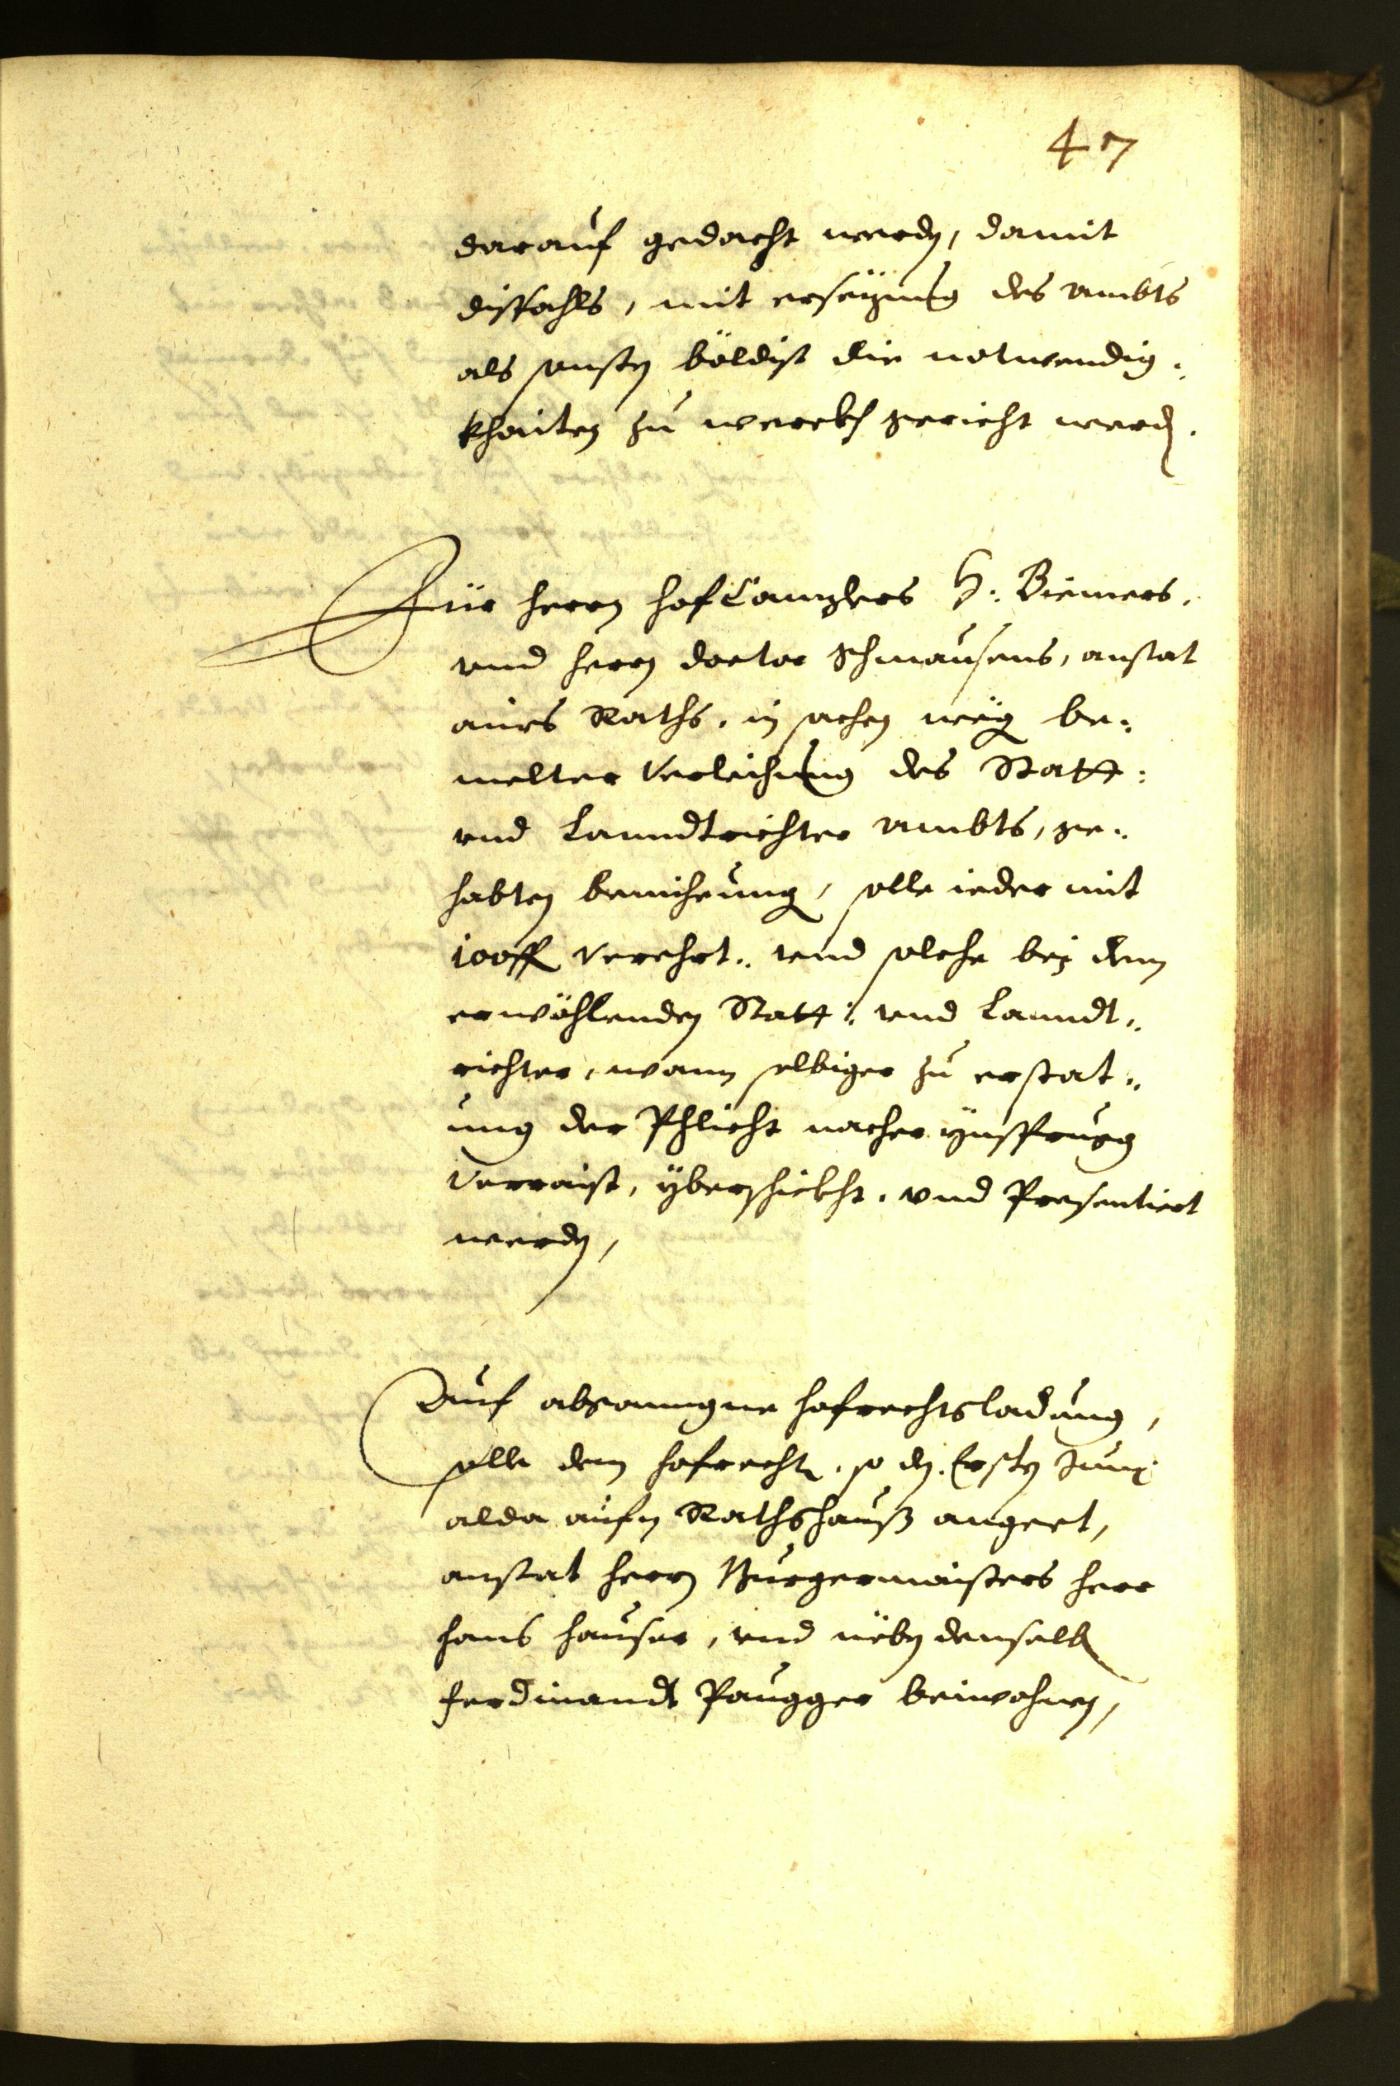 47
darauf gedacht werden, damit
dißfahls, mit ersezung des Ambts
als sonsten böldist die notwendig¬
khaiten zu werckh gericht werd.
Für herrn hof Canzlers H: Biemers,
vnd herrn doctor Schmausens, anstat
aines Raths, in sachen weg be¬
melter Verleichung des Statt:
vnd Lanndtrichter Ambts, ge¬
habten bemiehung, solle ieder mit
100 fl Verehrt, vnd solche bei dem
erwöhlenden Statt: vnd Lanndt¬
richter, wann selbiger zu erstat¬
ung der Phlicht nacher Ynsprugg
Verraist, yberschickht, vnd Presentiert
werden,
Auf abgangne hofrechtsladung,
solle dem hofrecht, so den Ersten Juny
alda aufn Rathshauß angeet,
anstat herrn Burgermaisters herr
hans hauser, vnd neben denselb
ferdinandt Paugger beiwohnen,